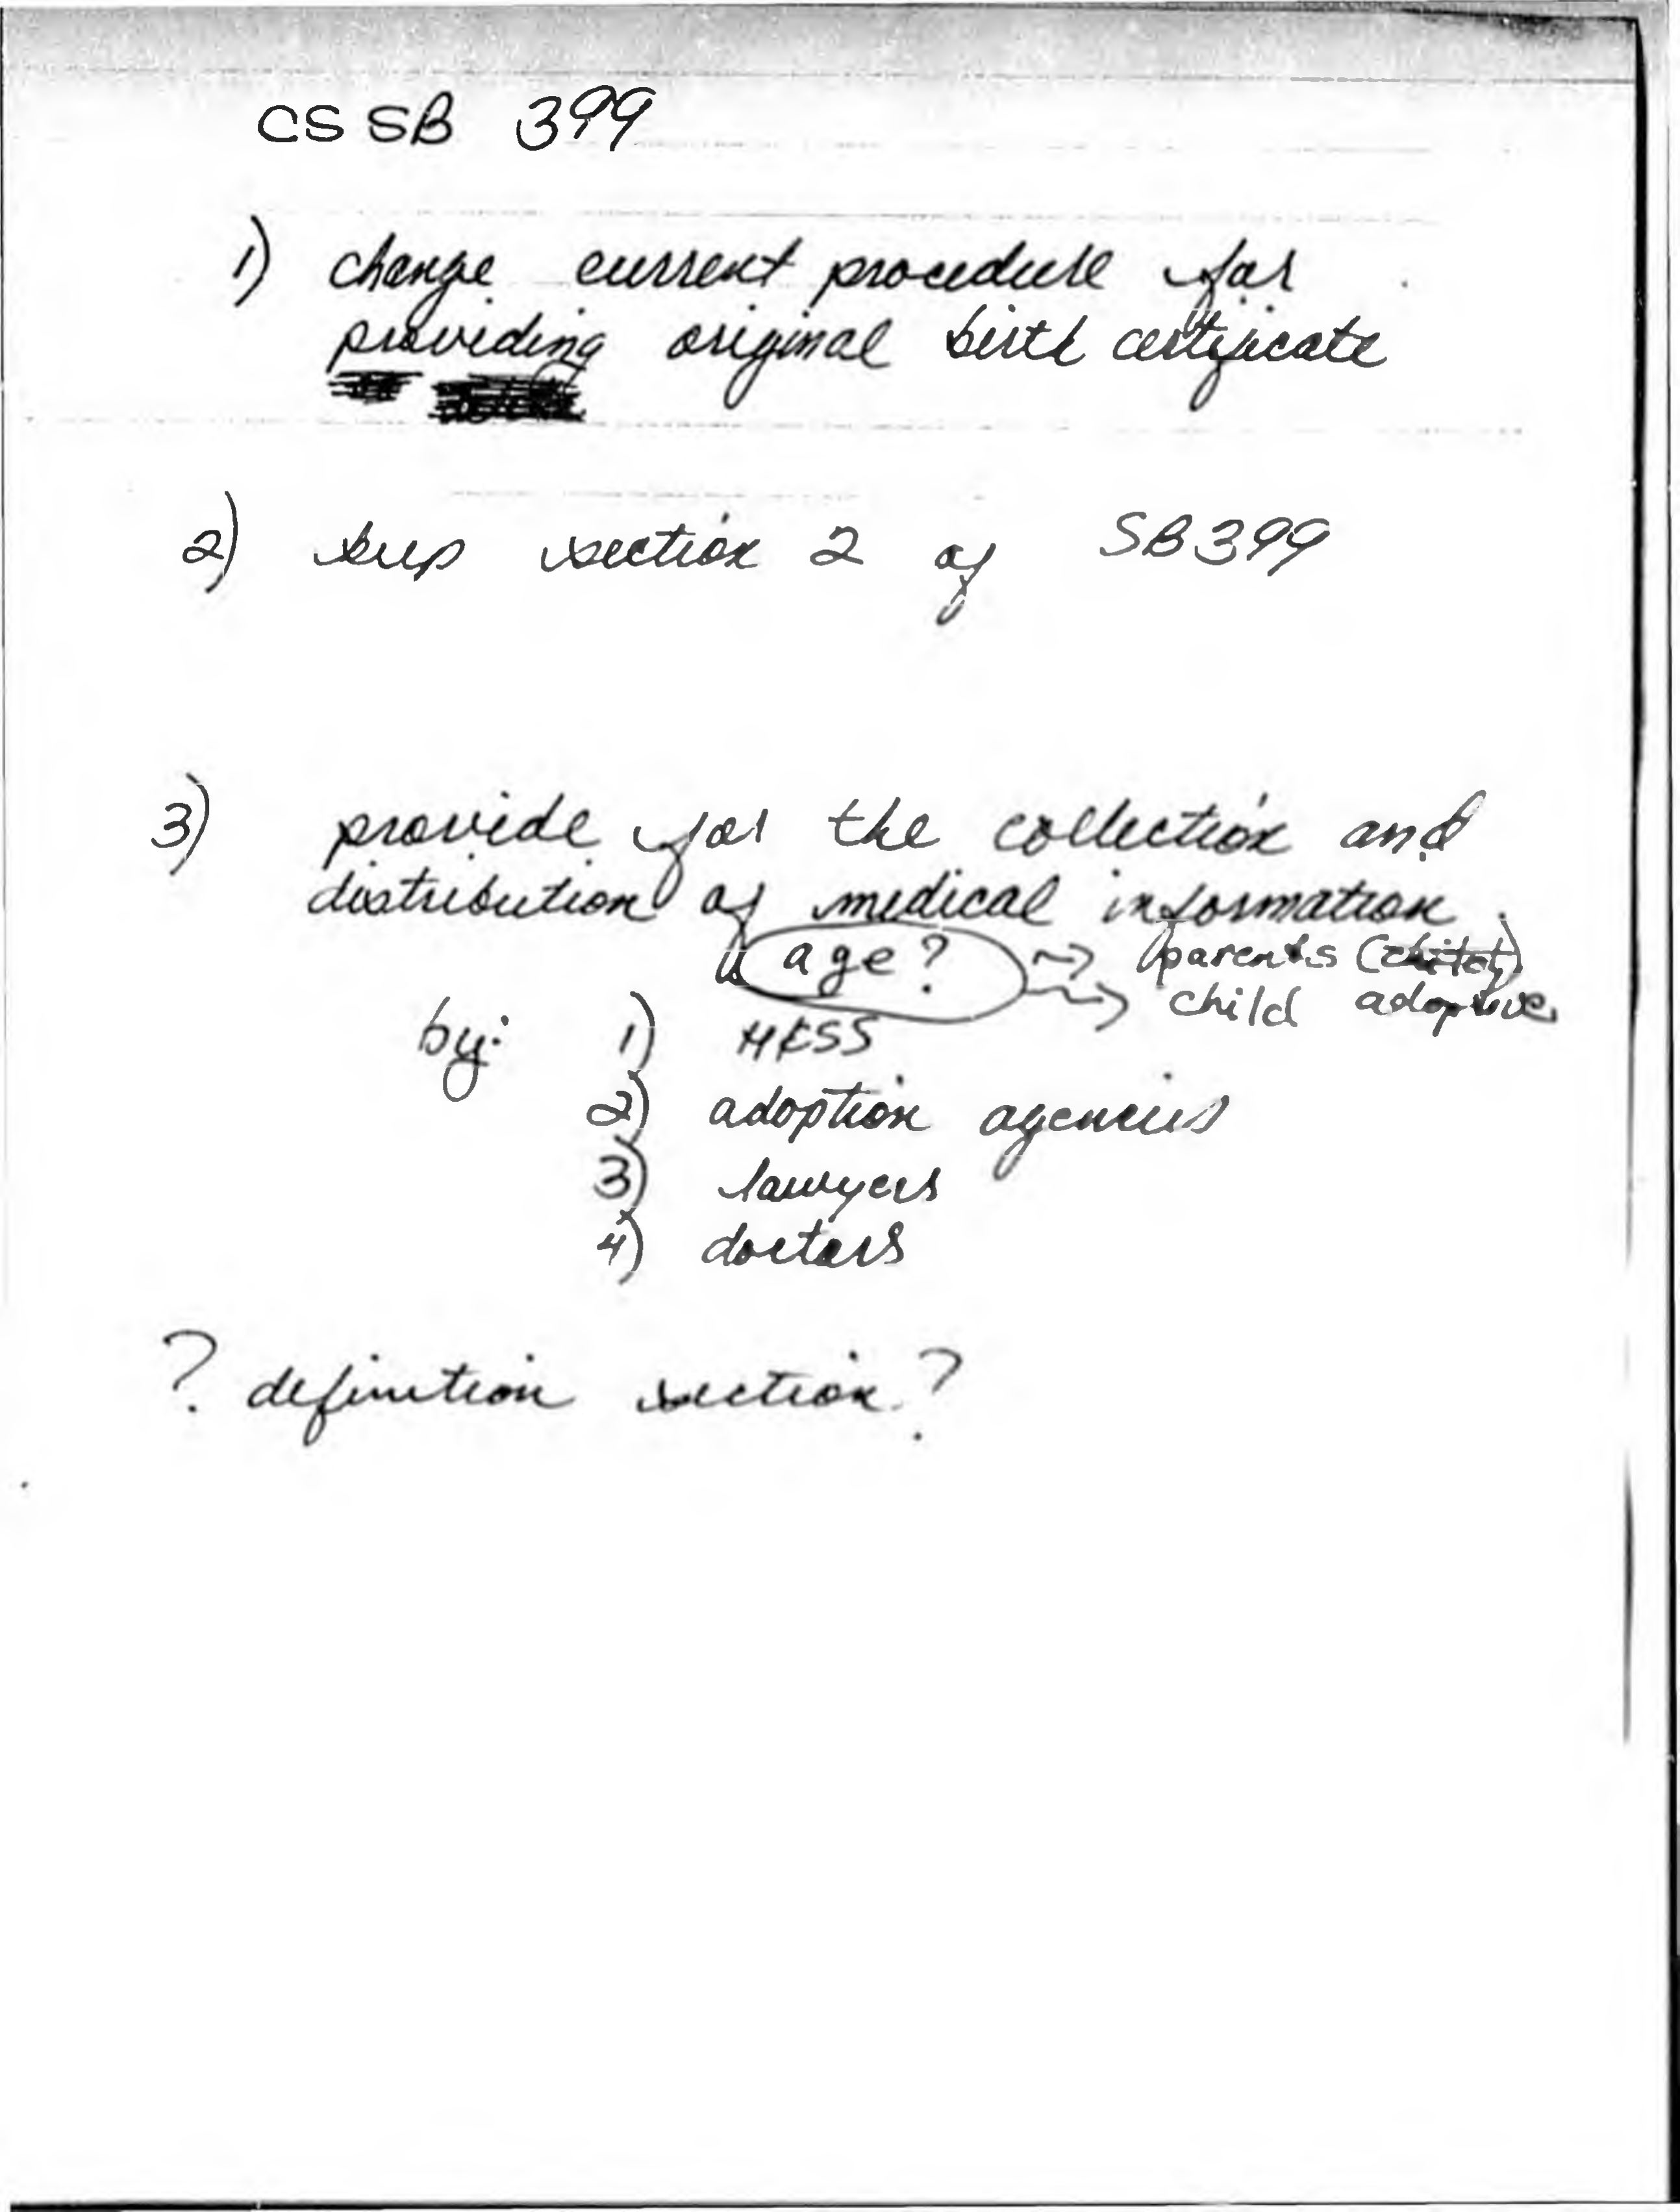 CS SB 399
1) change current procedure for
providing original birth certificate
2) keep section 2 of SB399
3) provide for the collection and
distribution of medical information.
age? → parents (
→ child adoptive)
by: 1) H&SS
2) adoption agencies
3) lawyers
4) doctors
? definition section?